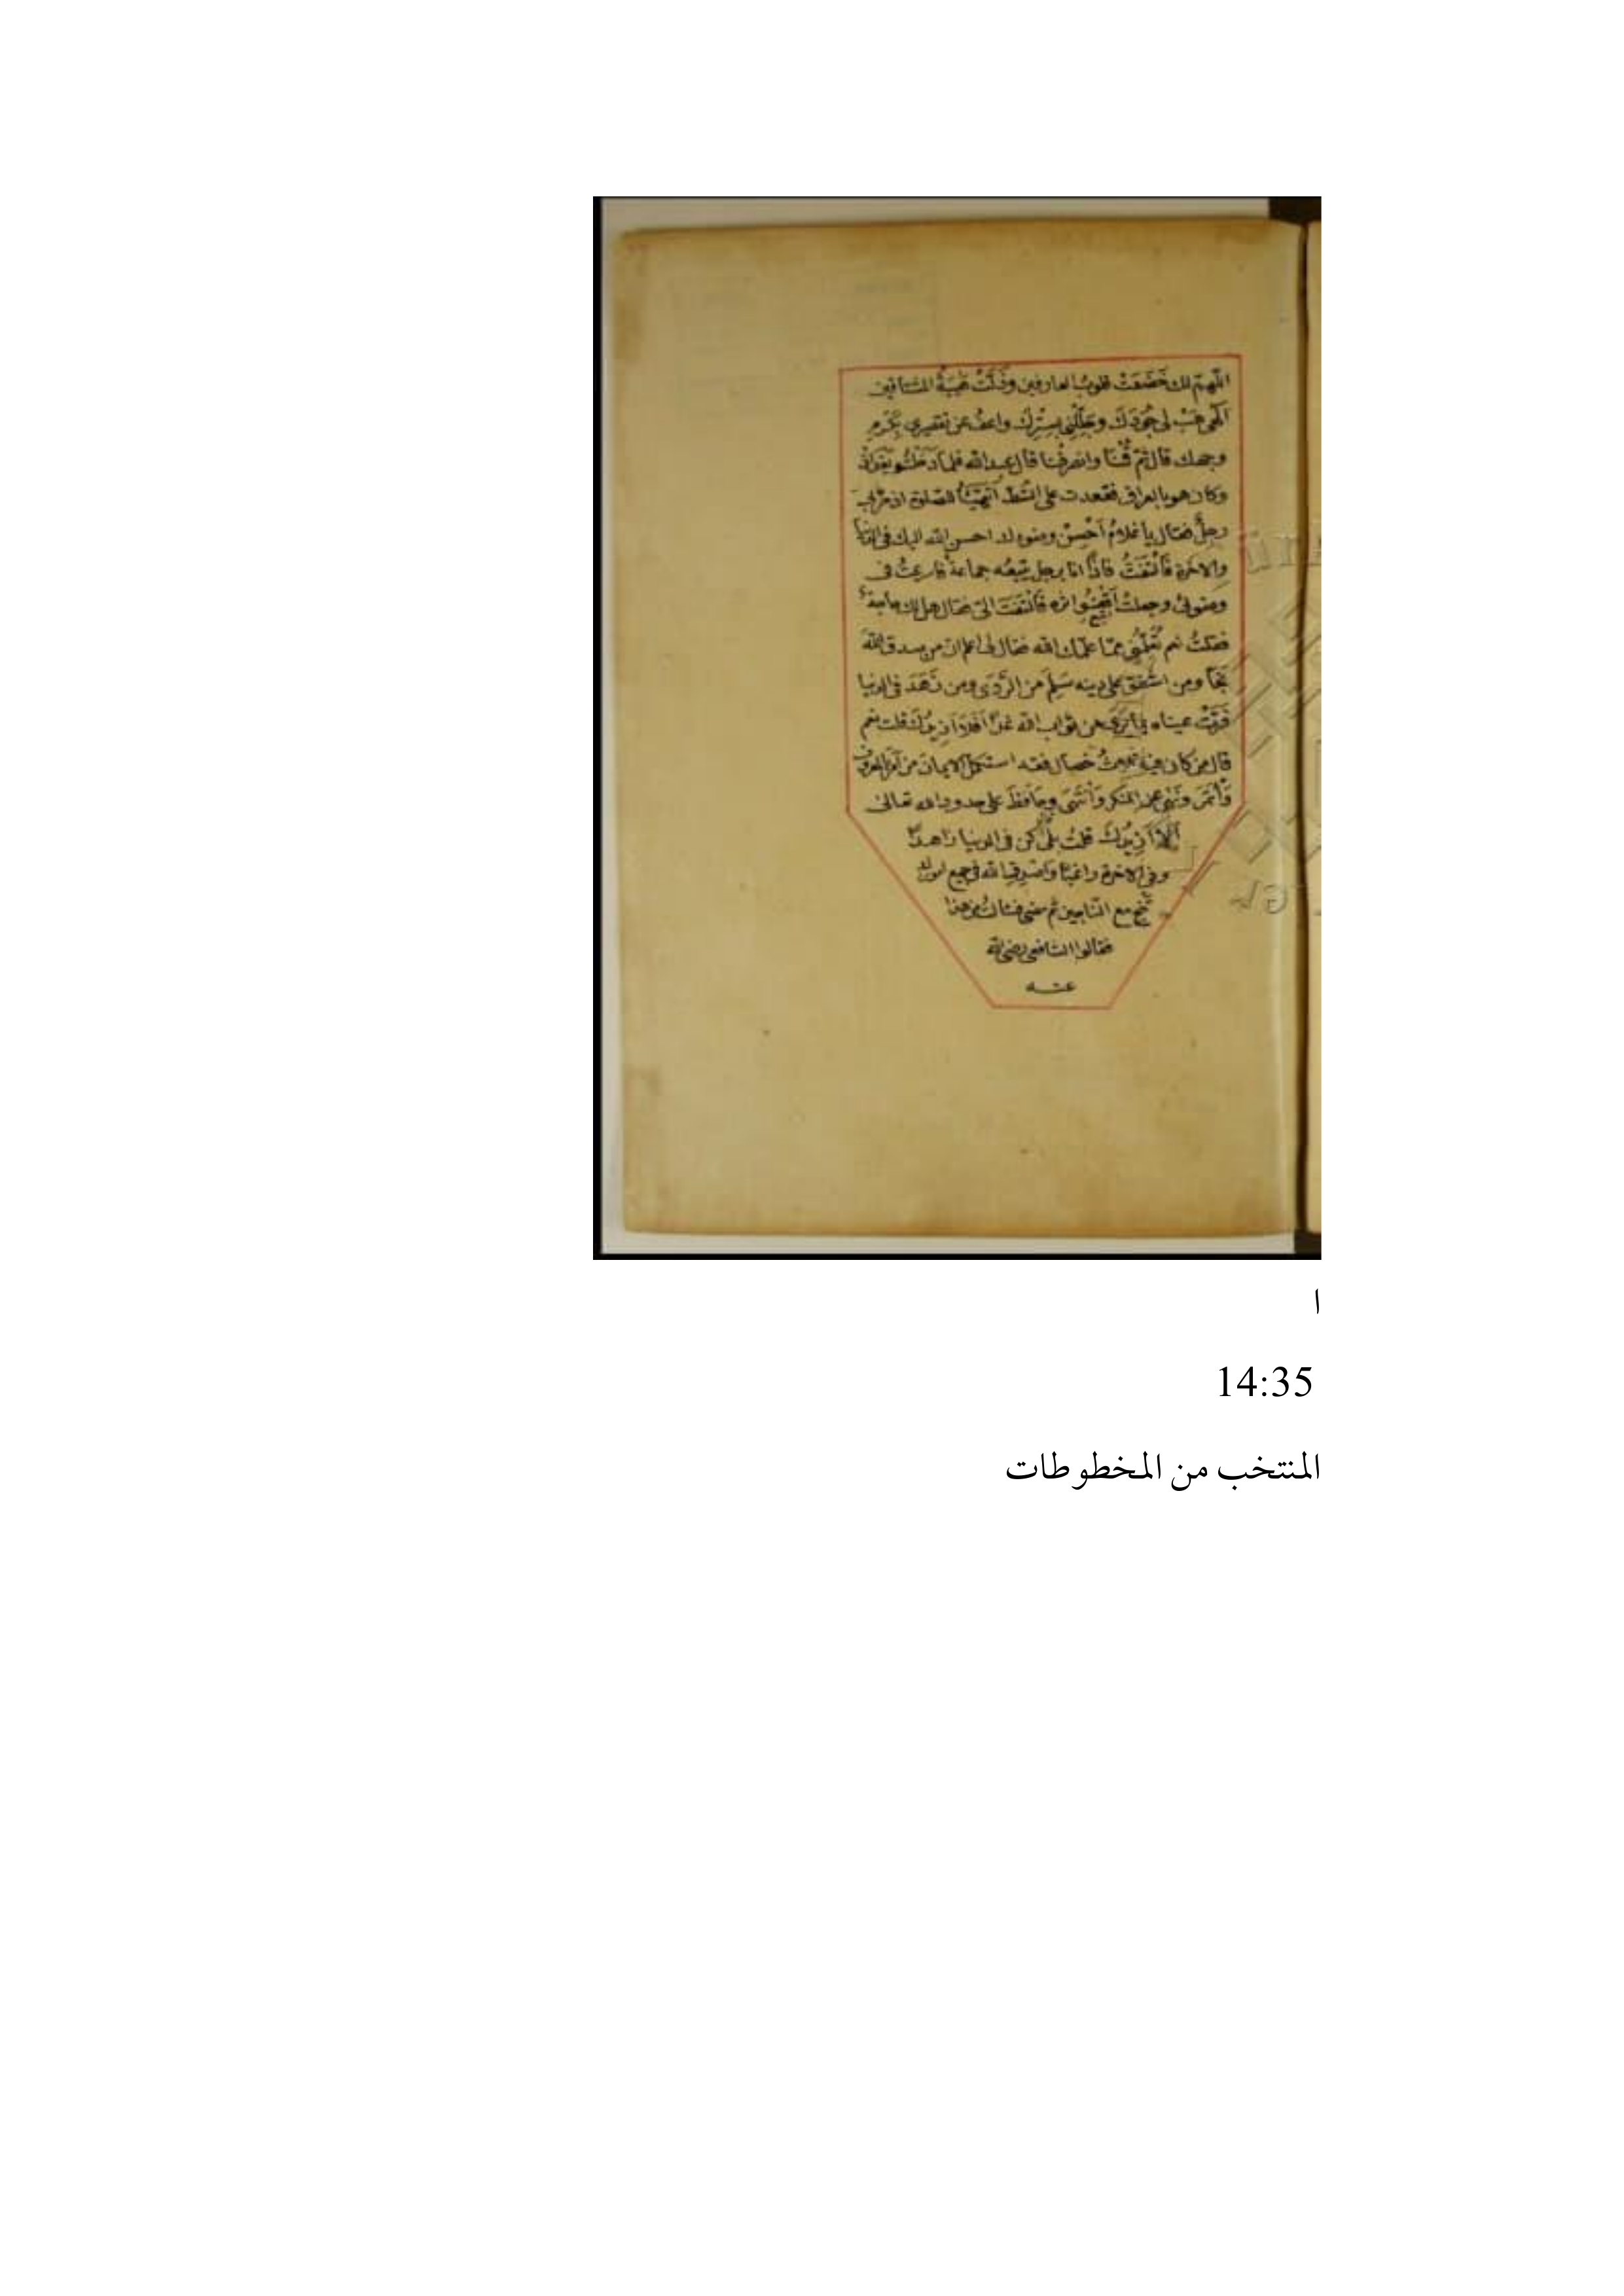 اللهم لك خَضَعَتْ قلوبُ العارفين وذَلَّتْ هَيْبَةُ المشتاقين
الهى هَبْ لى جُودَكَ وجَلِّلْنِى بِسِتْرِكَ واعفُ عن تقصيرى بِكَرَمِ
وجهك قال ثم قُمْنَا وانصرفْنا قال عبد الله فلما دَخَلْتُ بَغْدَادَ
وكان هو بالعراق فقعدت على الشَّطِّ أتَهَيَّأُ للصلوة اذ مَرَّ بى
رجلٌ فقال يا غلامُ أحْسِنْ وضوءك احسن الله اليك فى الدنيا
والاخرة فَالْتَفَتُّ فاذا انا برجل يَتْبَعُه جماعة فاسرعتُ فى
وضوئى وجعلتُ أقْفُوا اثره فَالْتَفَتَ الىّ فقال هل لك حاجة
فقلتُ نعم تُعَلِّمُنِى ممّا علّمك الله فقال لى اعلم انّ من صدق الله
نَجَا ومن اشفق على دينه سَلِمَ من الرَّدَى ومن زَهَدَ فى الدنيا
قَرَّتْ عيناه بما يَرَى من ثواب الله غدًا أفلا أزيدُكَ قلت نعم
قال من كان فيه ثلاثُ خصال فقد استكمل الايمانَ من أمَرَ بالمعروف
وأْتَمَرَ ونَهَى عن المنكر وانْتَهَى وحَافَظَ على حدود الله تعالى
ألا أزِيدُكَ قلتُ بلى كن فى الدنيا زاهدًا
وفى الاخرة راغبًا واصْدُقِ الله فى جميع امورك
تَنْجُ مع الناجين ثم مضى فسالتُ من هذا
فقالوا الشافعى رضى الله
عنه
ا
14:35
المنتخب من المخطوطات